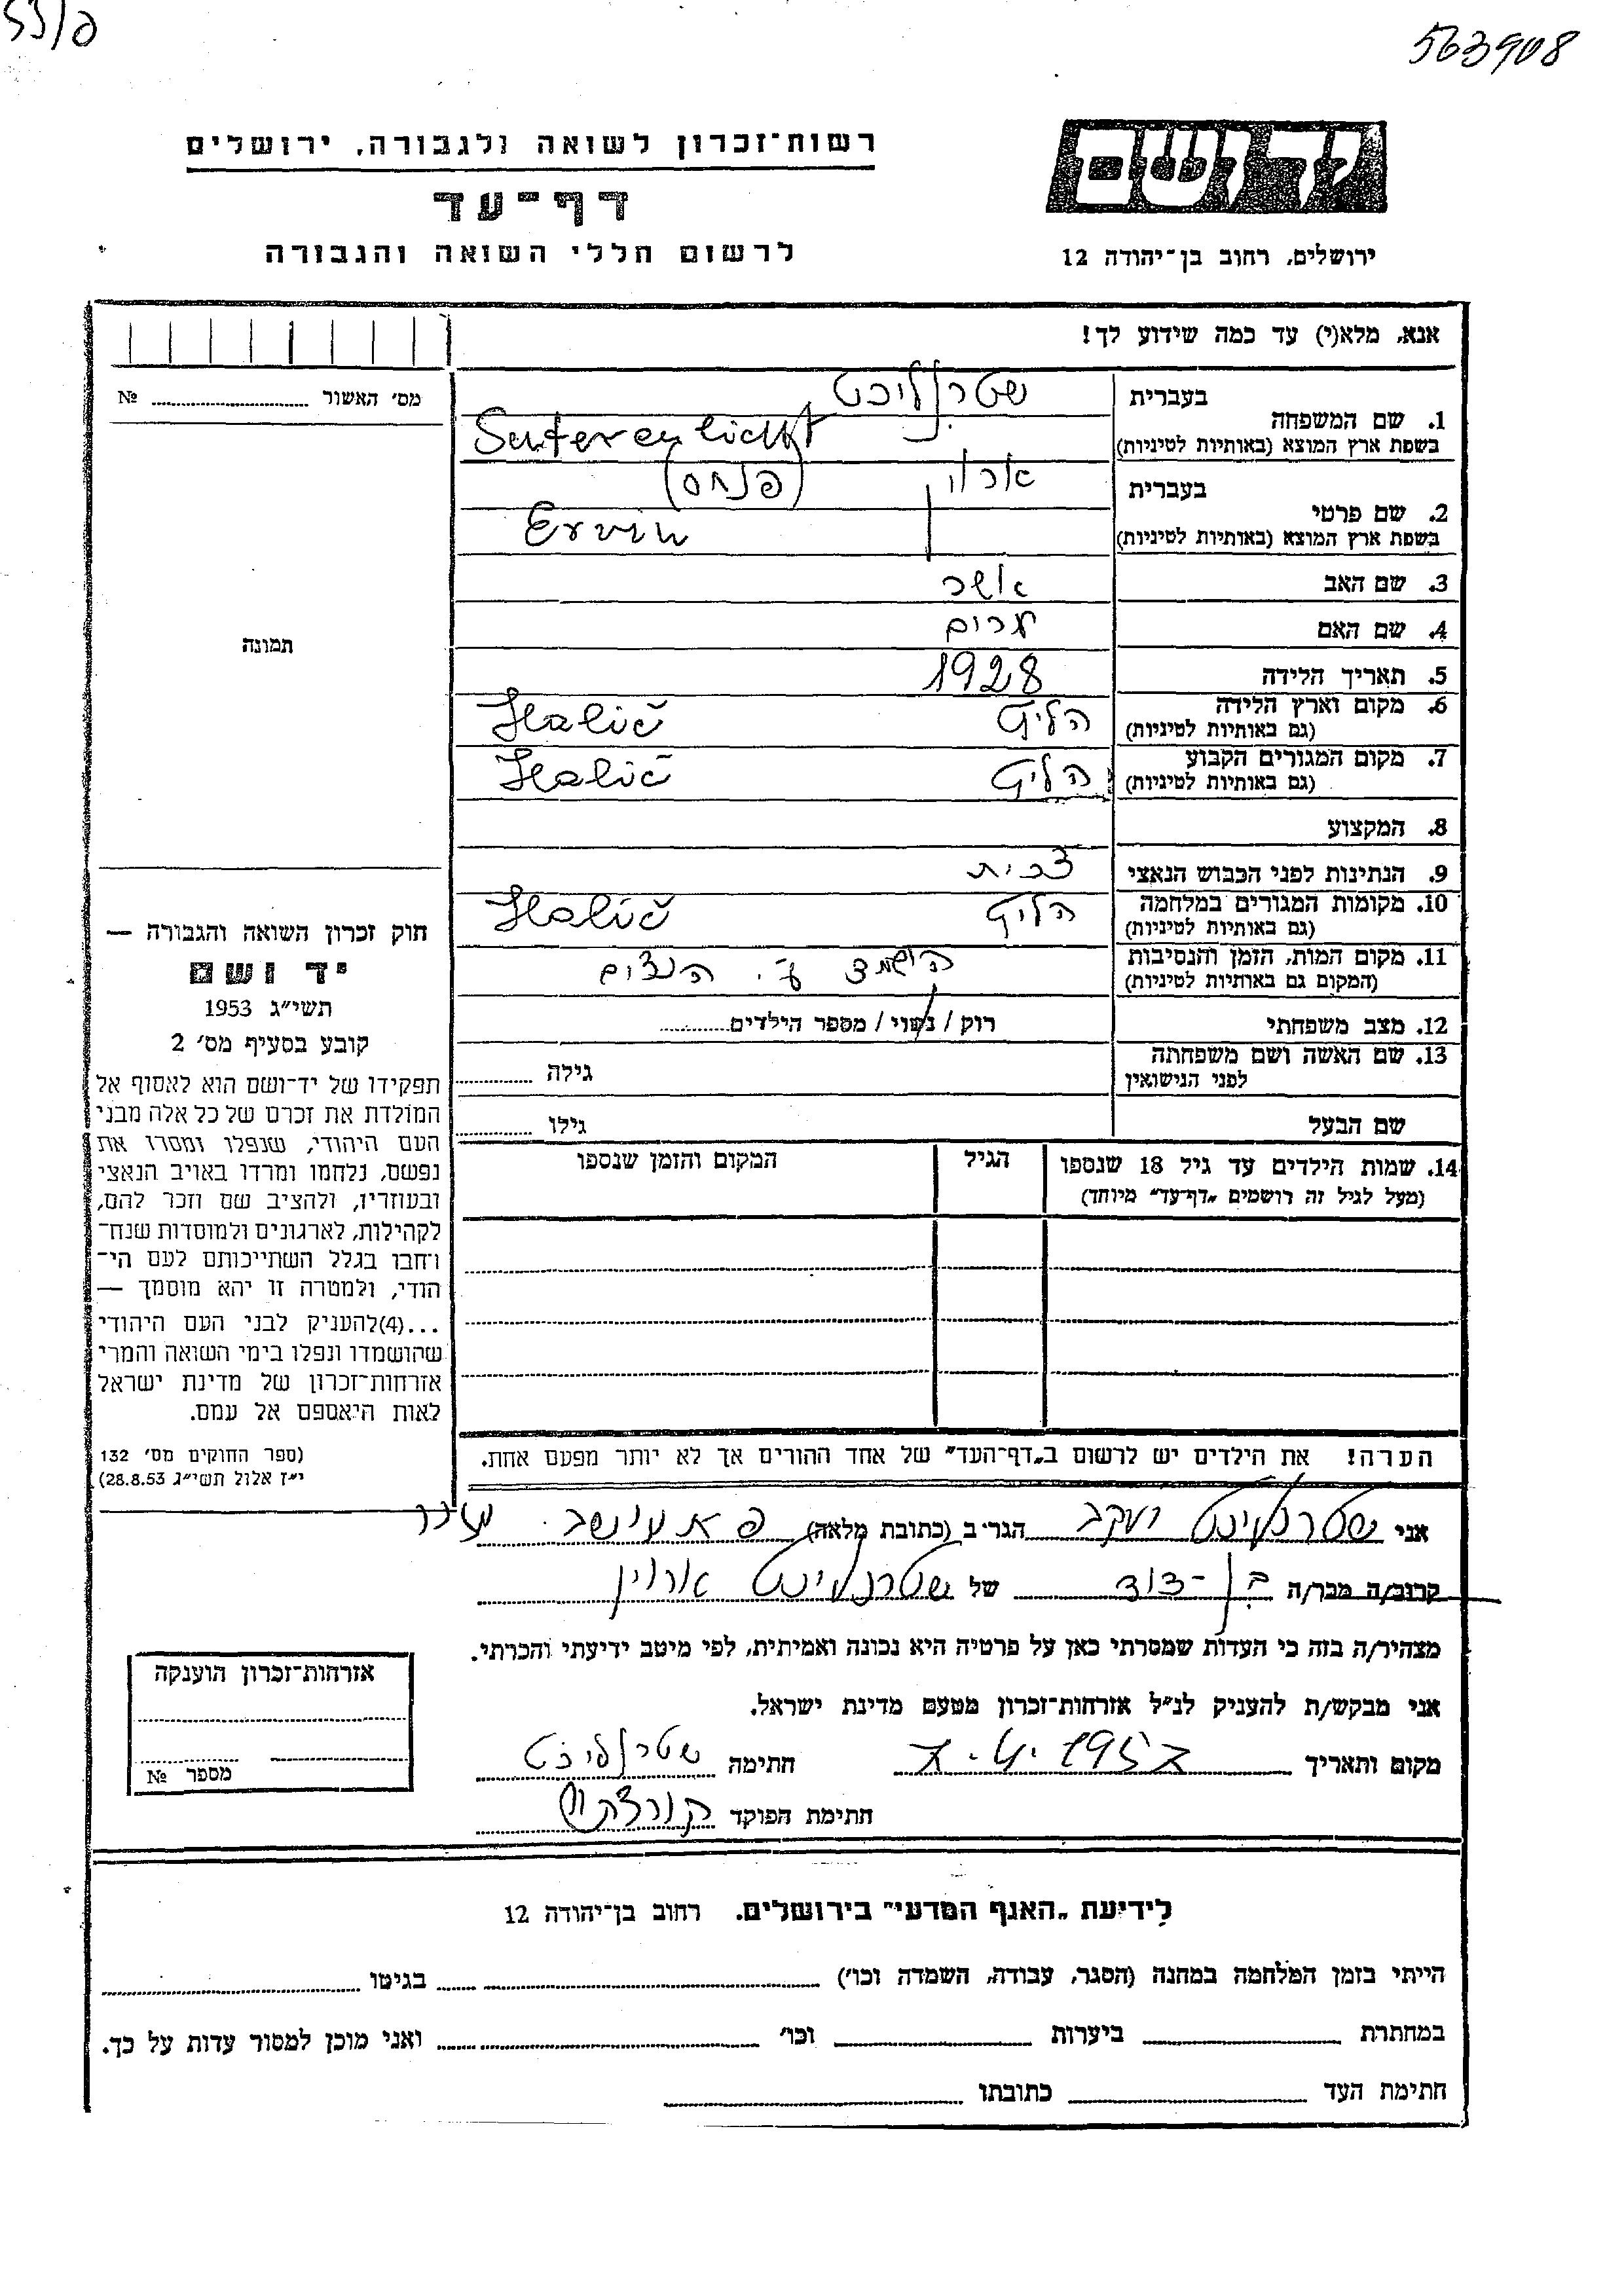 563908
רשות־זכרון לשואה ולגבורה, ירושלים
יד ושם
דף־עד
לרשום חללי השואה והגבורה
ירושלים, רחוב בן־יהודה 12
אנא, מלא(י) עד כמה שידוע לך!
מס׳ האשור № ..........
1. שם המשפחה
בעברית שטרנליכט
בשפת ארץ המוצא (באותיות לטיניות)
2. שם פרטי
בעברית ארוין (פנחס)
בשפת ארץ המוצא (באותיות לטיניות) Ervin
3. שם האב אשר
4. שם האם מרים
5. תאריך הלידה 1928
6. מקום וארץ הלידה
(גם באותיות לטיניות) הליץ Halič
7. מקום המגורים הקבוע
(גם באותיות לטיניות) הליץ Halič
8. המקצוע
9. הנתינות לפני הכבוש הנאצי צ׳כית
10. מקומות המגורים במלחמה
(גם באותיות לטיניות) הליץ Halič
11. מקום המות, הזמן והנסיבות
(המקום גם באותיות לטיניות) הושמד ע״י הנצים
12. מצב משפחתי רוק / נשוי / מספר הילדים..........
13. שם האשה ושם משפחתה
לפני הנישואין גילה ..........
שם הבעל גילו ..........
14. שמות הילדים עד גיל 18 שנספו
(מעל לגיל זה רושמים „דף־עד״ מיוחד)
הגיל
המקום והזמן שנספו
הערה! את הילדים יש לרשום ב„דף־העד״ של אחד ההורים אך לא יותר מפעם אחת.
תמונה
חוק זכרון השואה והגבורה —
יד ושם
תשי״ג 1953
קובע בסעיף מס׳ 2
תפקידו של יד־ושם הוא לאסוף אל
המולדת את זכרם של כל אלה מבני
העם היהודי, שנפלו ומסרו את
נפשם, נלחמו ומרדו באויב הנאצי
ובעוזריו, ולהציב שם וזכר להם,
לקהילות, לארגונים ולמוסדות שנח־
רחבו בגלל השתייכותם לעם הי־
הודי, ולמטרה זו יהא מוסמך —
...(4)להעניק לבני העם היהודי
שהושמדו ונפלו בימי השואה והמרי
אזרחות־זכרון של מדינת ישראל
לאות היאספם אל עמם.
(ספר החוקים מס׳ 132
י״ז אלול תשי״ג 28.8.53)
אני שטרנליכט יעקב הגר־ב (כתובת מלאה)
קרוב/ה מכר/ה בן־דוד של שטרנליכט ארוין
מצהיר/ה בזה כי העדות שמסרתי כאן על פרטיה היא נכונה ואמיתית, לפי מיטב ידיעתי והכרתי.
אני מבקש/ת להעניק לנ״ל אזרחות־זכרון מטעם מדינת ישראל.
מקום ותאריך 1957 חתימה שטרנליכט
חתימת הפוקד
אזרחות־זכרון הוענקה
מספר №
לידיעת „האגף המדעי״ בירושלים. רחוב בן־יהודה 12
הייתי בזמן המלחמה במחנה (הסגר, עבודה, השמדה וכו׳) .......... בגיטו ..........
במחתרת .......... ביערות .......... וכו׳ .......... ואני מוכן למסור עדות על כך.
חתימת העד .......... כתובתו ..........